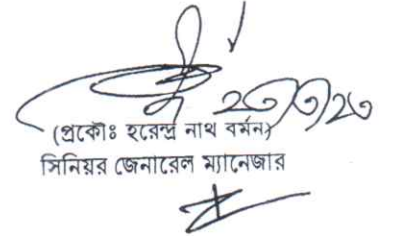 (প্রকৌঃ হরেন্দ্র নাথ বর্মন)
সিনিয়র জেনারেল ম্যানেজার